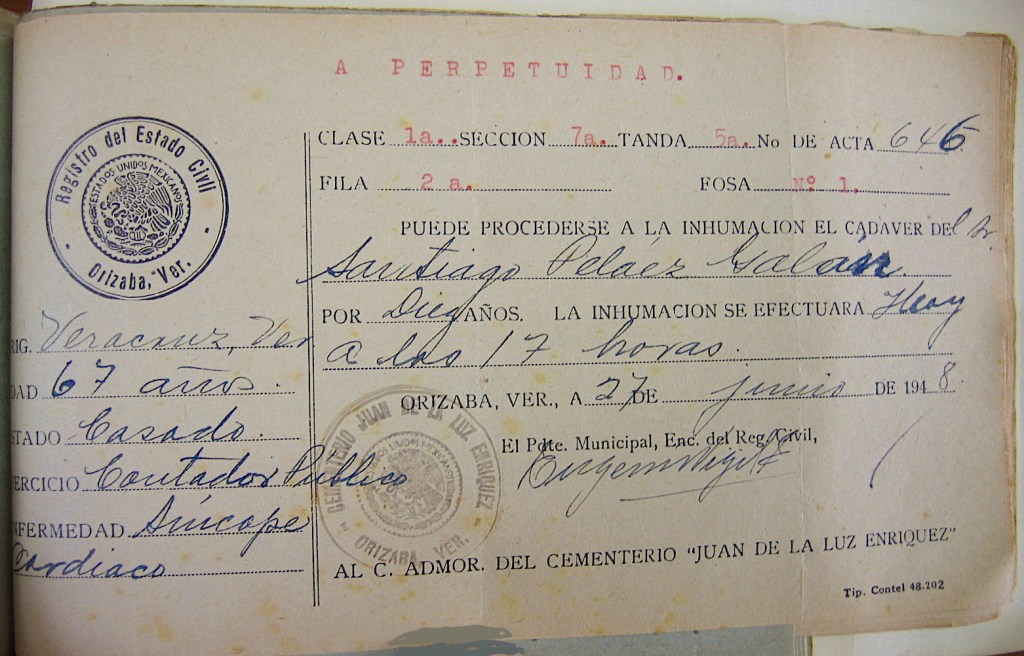 A PERPETUIDAD.
Registro del Estado Civil
ESTADOS UNIDOS MEXICANOS
Orizaba, Ver.
CLASE 1a. SECCION 7a. TANDA 5a. No DE ACTA 646
FILA 2 a. FOSA Nº 1.
PUEDE PROCEDERSE A LA INHUMACION EL CADAVER DEl Sr.
Santiago Peláez Galán
POR Diez AÑOS. LA INHUMACION SE EFECTUARA Hoy
a las 17 horas.
ORIZABA, VER., A 27 DE junio DE 1948.
El Pdte. Municipal, Enc. del Reg. Civil,
RIG. Veracruz, Ver
DAD 67 años.
STADO Casado.
ERCICIO Contador Público
NFERMEDAD Síncope
Cardiaco
CEMENTERIO JUAN DE LA LUZ ENRIQUEZ
ESTADOS UNIDOS MEXICANOS
ORIZABA, VER.
AL C. ADMOR. DEL CEMENTERIO "JUAN DE LA LUZ ENRIQUEZ"
Tip. Contel 48.202